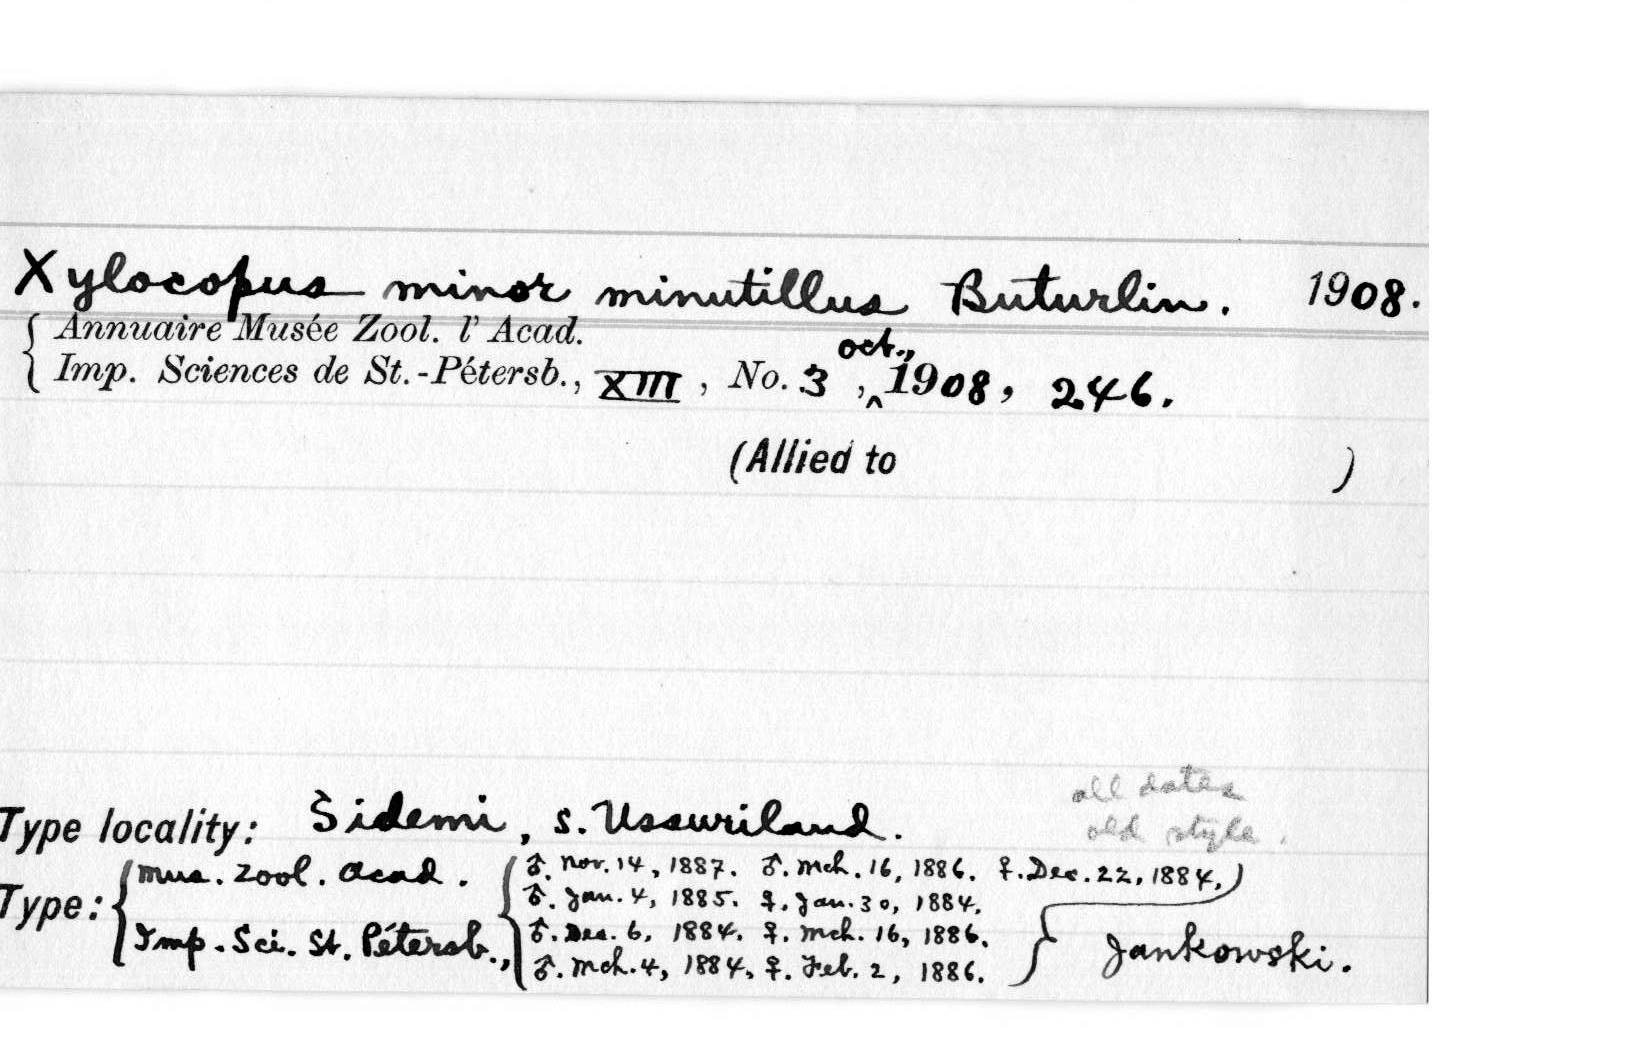 Xylocopus minor minutillus Buturlin. 1908.
Annuaire Musée Zool. l' Acad.
Imp. Sciences de St.-Pétersb., XIII, No. 3, oct., 1908, 246.
(Allied to )
all dates
old style.
Type locality: Šidemi, s. Ussuriland.
Type: Mus. Zool. Acad. Imp. Sci. St. Pétersb.,
♂. Nov. 14, 1887. ♂. Mch. 16, 1886. ♀. Dec. 22, 1884.
♂. Jan. 4, 1885. ♀. Jan. 30, 1884.
♂. Dec. 6, 1884. ♀. Mch. 16, 1886.
♂. Mch. 4, 1884, ♀. Feb. 2, 1886.
Jankowski.